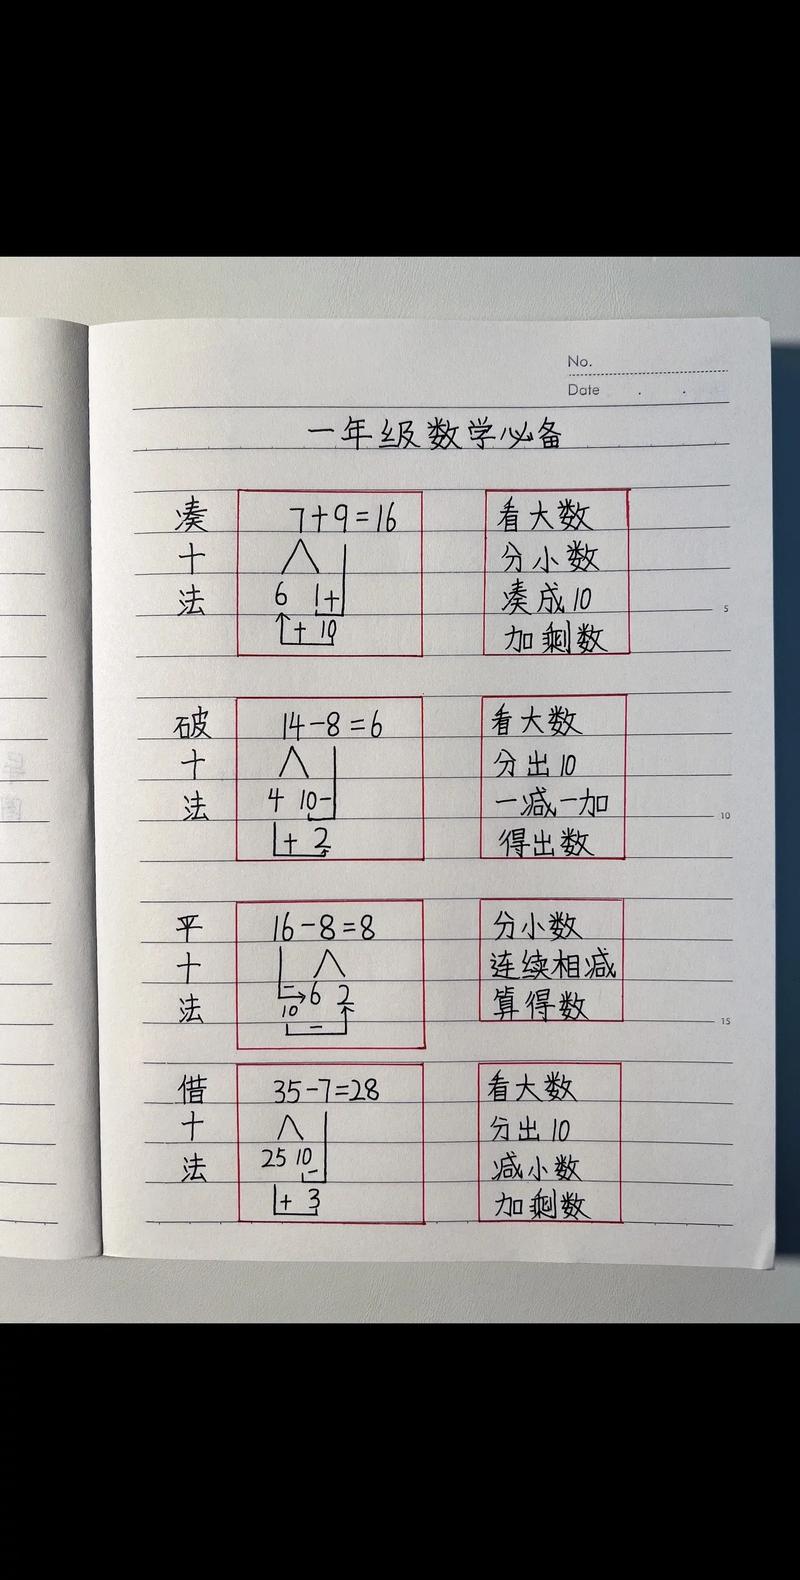 No.
Date . .
一年级数学必备
凑十法
7+9=16
6 1+
+ 10
看大数
分小数
凑成10
加剩数
5
破十法
14-8=6
4 10-
+ 2
看大数
分出10
一减一加
得出数
10
平十法
16-8=8
- 6 2
10
-
分小数
连续相减
算得数
15
借十法
35-7=28
25 10
-
+ 3
看大数
分出10
减小数
加剩数